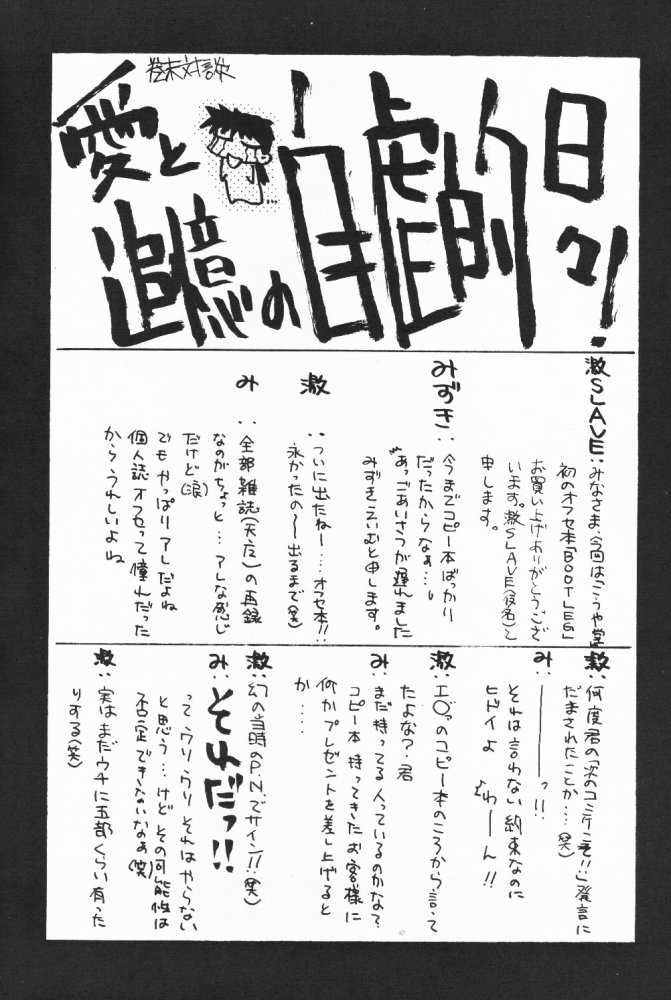 巻末対談
愛と
追憶の
自虐的
日々!
激SLAVE:みなさま、今回はこうや堂
初のオフセ本「BOOTLEG」
お買い上げありがとうござ
います。激SLAVE(仮名)と
申します。
みずき:今までコピー本ばっかり
だったからなぁ…。
あっごあいさつが遅れました
みずきえいむと申します。
激:ついに出たねー……オフセ本!!
永かったの〜出るまで(笑)
み:全部雑誌(天左)の再録
なのがちょっと…アレな感じ
だけど(涙)
でもやっぱりアレだよね
個人誌オフセって憧れだった
からうれしいよね
激:何度君の「次のコミケこそ!!」発言に
だまされたことか……(笑)
み:―――っ!!
それは言わない約束なのに
ヒドイよ わーん!!
激:エ○っのコピー本のころから言って
たよな?君
み:まだ持ってる人っているのかな?
コピー本持ってきたお客様に
何かプレゼントを差し上げると
か……
激:幻の当時のP.N.でサイン!!(笑)
み:それだっ!!
ってウソウソそれはやらない
と思う…けどその可能性は
否定できないなぁ(笑)
激:実はまだウチに五部くらい有った
りする(笑)